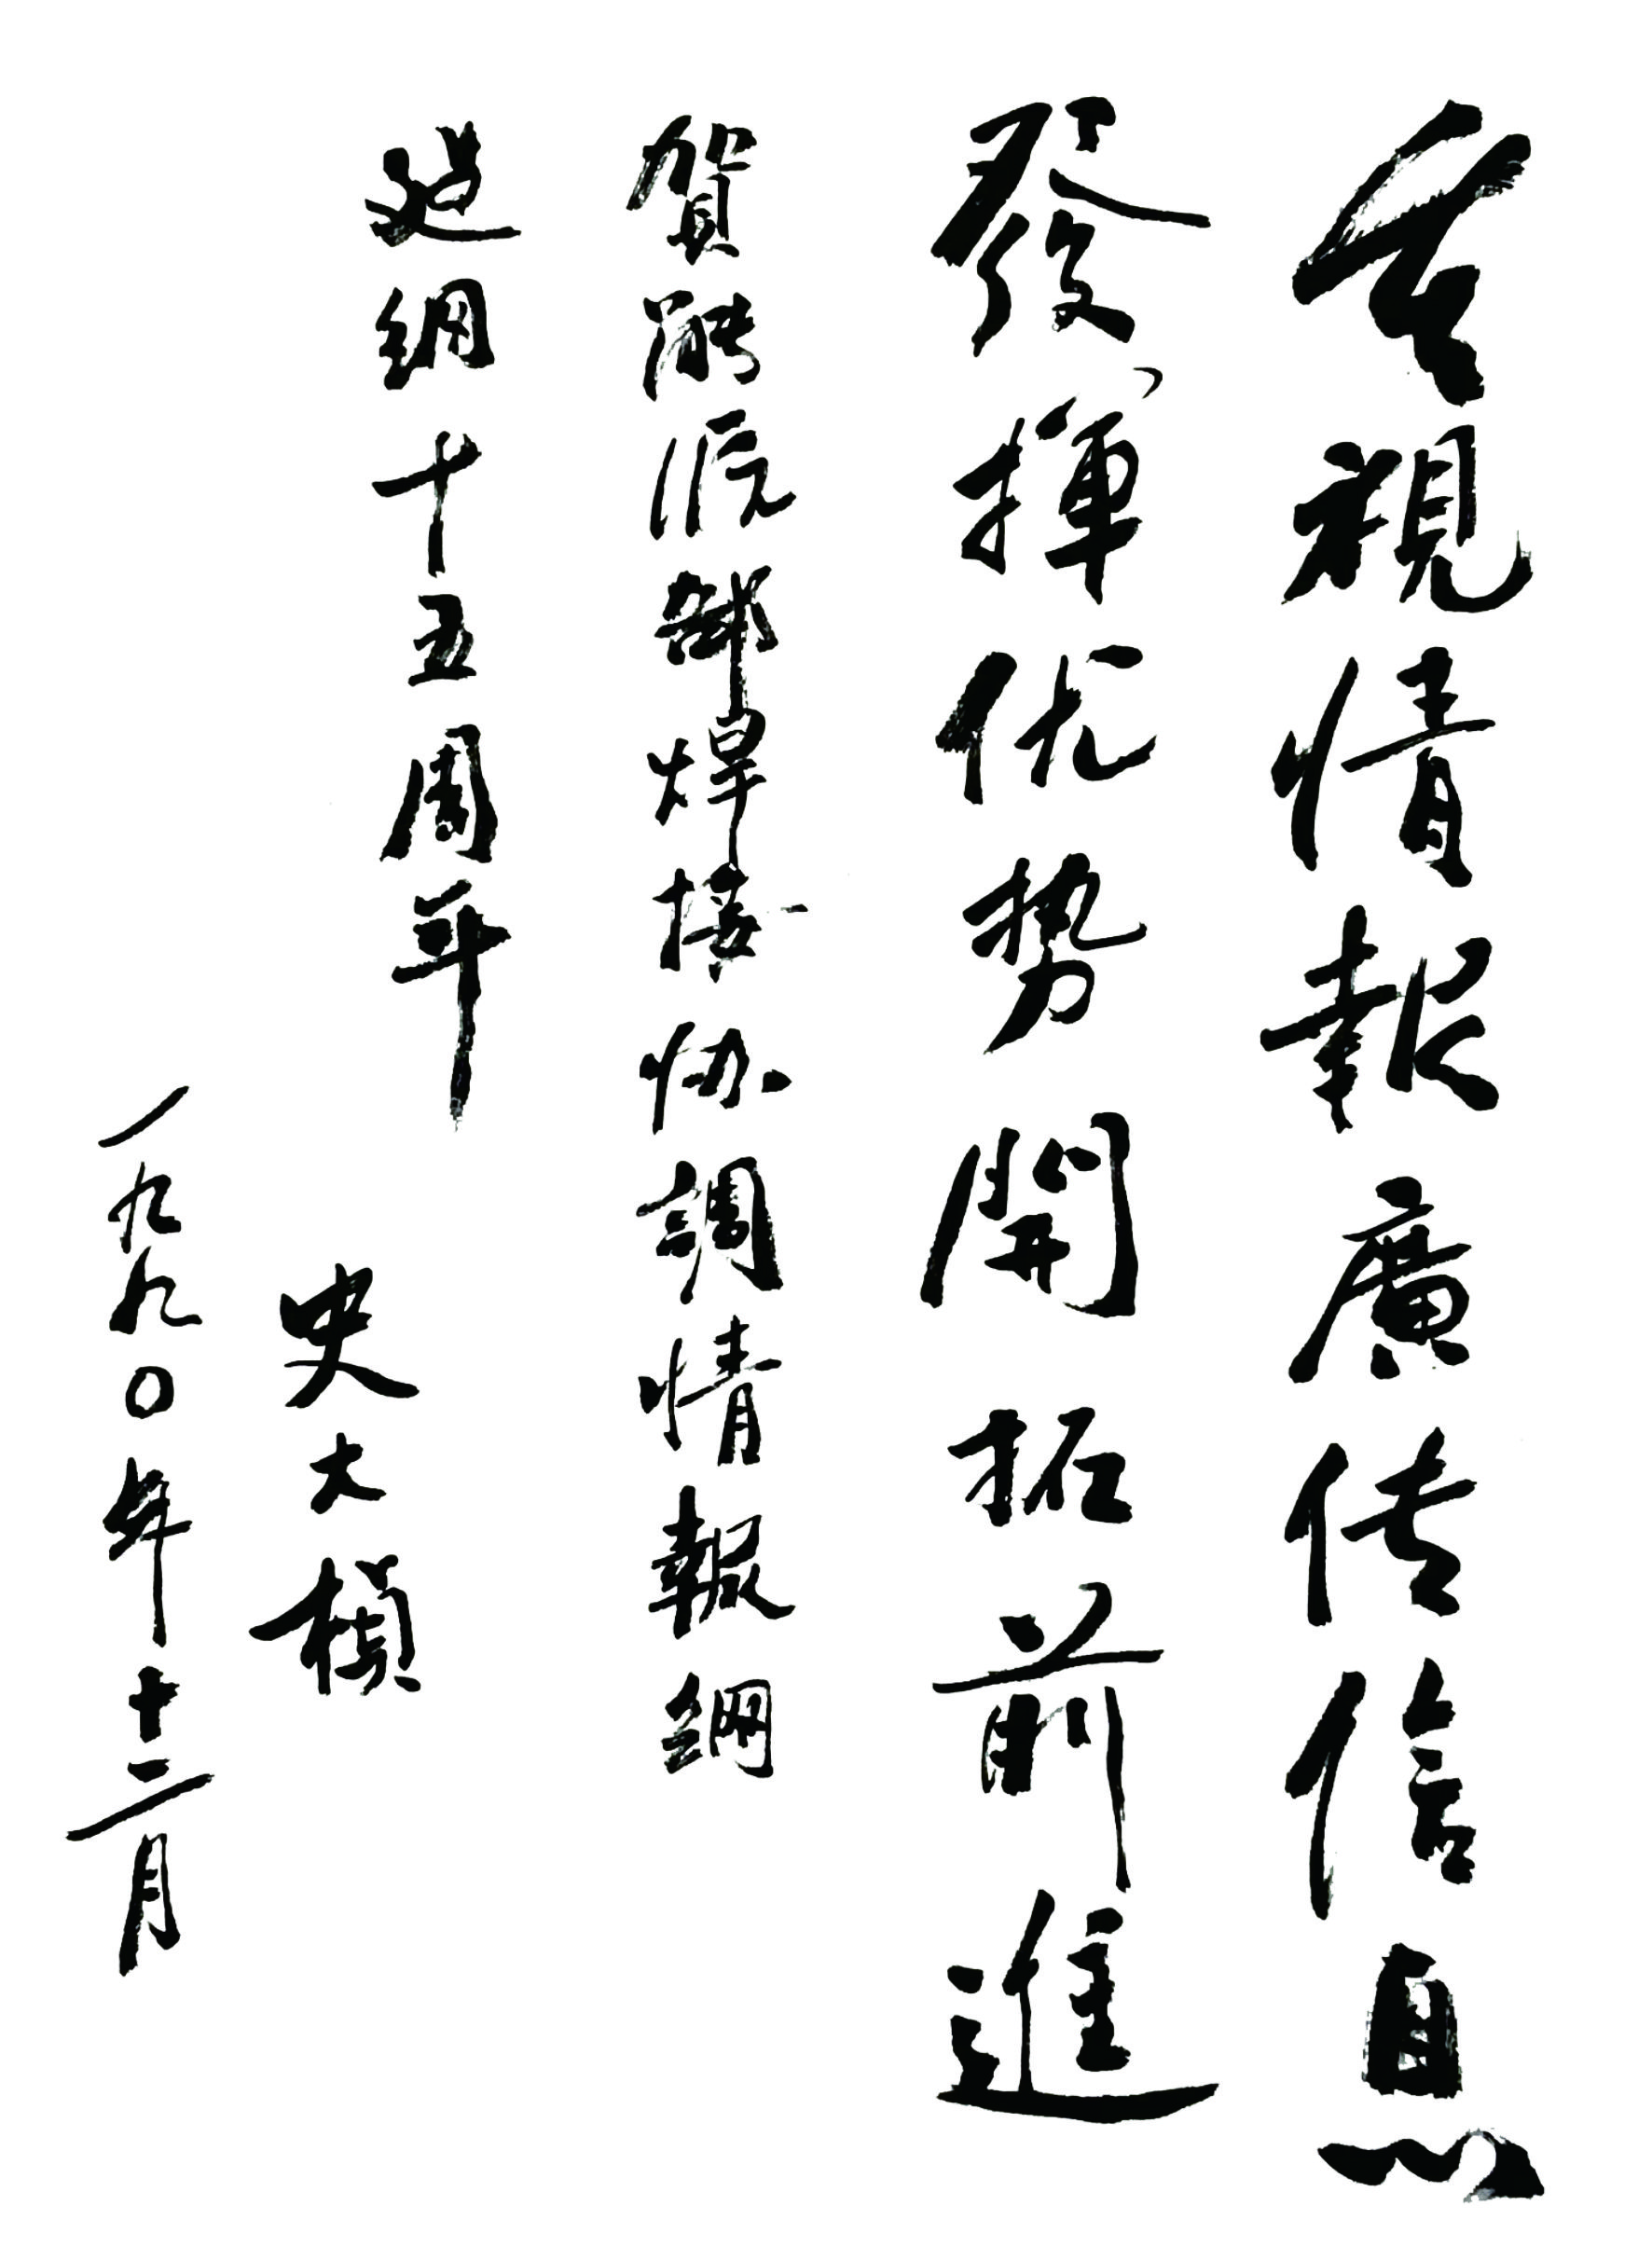 視情報廣传信息
發揮优势開拓前進
賀能源部焊接协調情報網
建網十五周年
史大楨
一九九〇年十二月